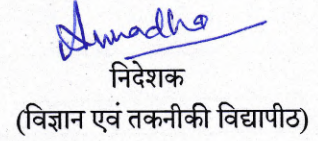 Anuradha
निदेशक
(विज्ञान एवं तकनीकी विद्यापीठ)